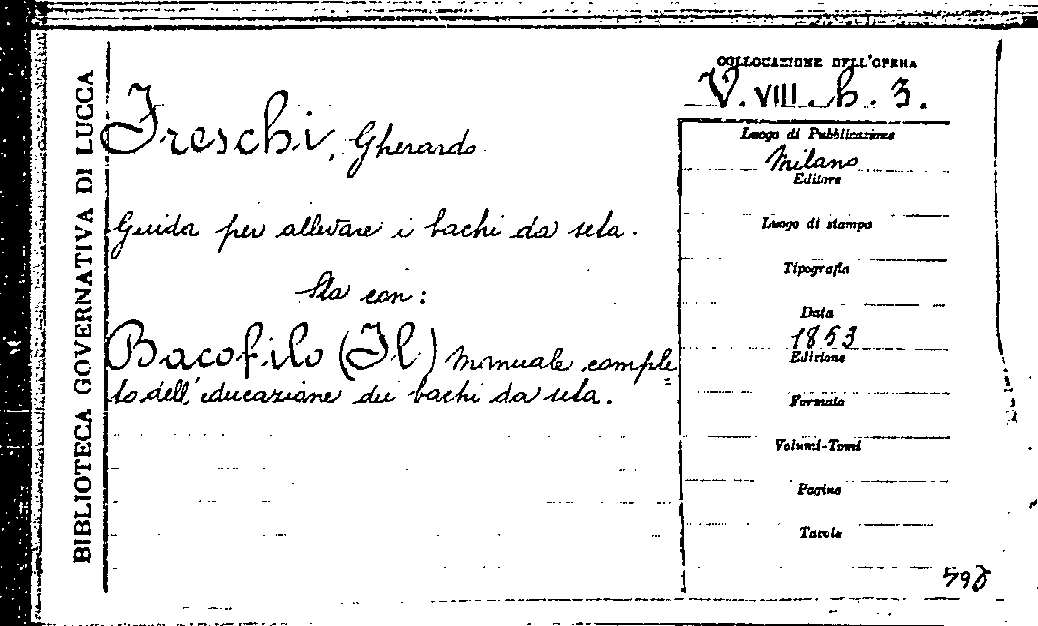 BIBLIOTECA GOVERNATIVA DI LUCCA
COLLOCAZIONE DELL'OPERA
V. VIII. b. 3.
Freschi, Gherardo
Guida per allevare i bachi da seta.
Sta con:
Bacofilo (Il) Manuale comple=
to dell'educazione dei bachi da seta.
Luogo di Pubblicazione
Milano
Editore
Luogo di stampa
Tipografia
Data
1853
Edizione
Formato
Volumi-Tomi
Pagine
Tavole